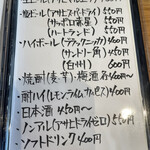 ・生ビール(アサヒスーパードライ)550円
(サッポロ赤星) 550円
(ハートランド) 550円
・ハイボール(ブラックニッカ)400円
(サントリー角)450円
(白州) 600円
・焼酎(麦・芋)・梅酒 各400円〜
・酎ハイ(レモン・ライム・カルピス)400円
・日本酒 450円〜
・ノンアル(アサヒドライゼロ)500円
・ソフトドリンク400円